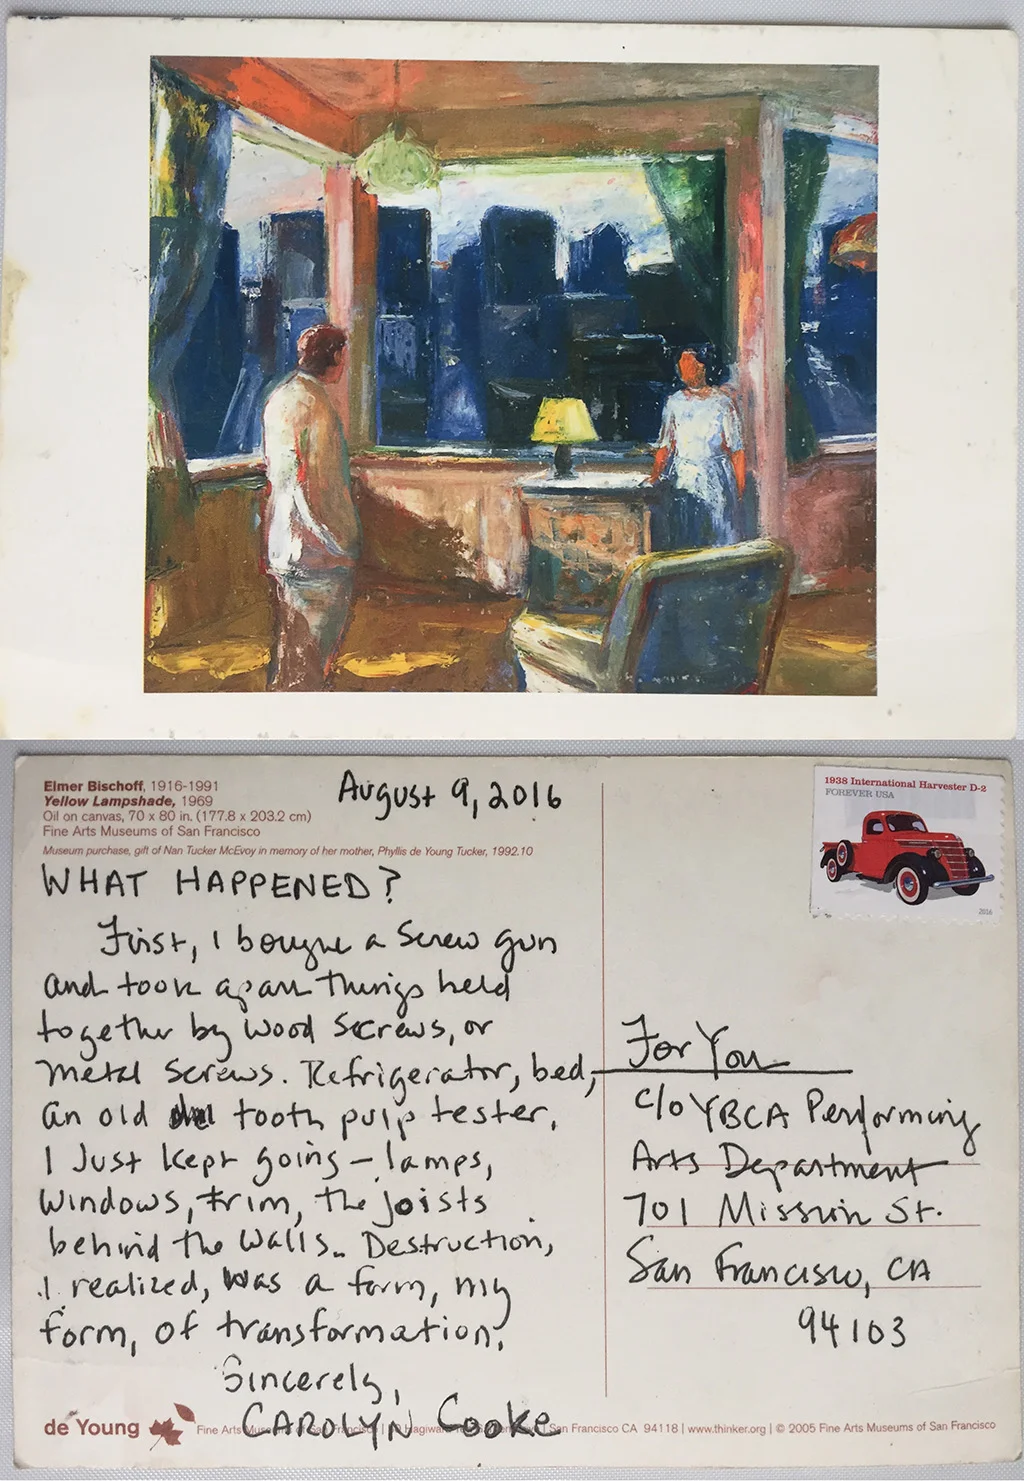 Elmer Bischoff, 1916-1991
Yellow Lampshade, 1969
Oil on canvas, 70 x 80 in. (177.8 x 203.2 cm)
Fine Arts Museums of San Francisco
Museum purchase, gift of Nan Tucker McEvoy in memory of her mother, Phyllis de Young Tucker, 1992.10
August 9, 2016
WHAT HAPPENED?
First, I bought a screw gun
and took apart things held
together by wood screws, or
metal screws. Refrigerator, bed,
an old tooth pulp tester.
I just kept going – lamps,
windows, trim, the joists
behind the walls. Destruction,
I realized, was a form, my
form, of transformation.
Sincerely,
CAROLYN Cooke
1938 International Harvester D-2
FOREVER USA
2016
For You
c/o YBCA Performing
Arts Department
701 Mission St.
San Francisco, CA
94103
de Young
Fine Arts Museums of San Francisco | San Francisco CA 94118 | www.thinker.org | © 2005 Fine Arts Museums of San Francisco